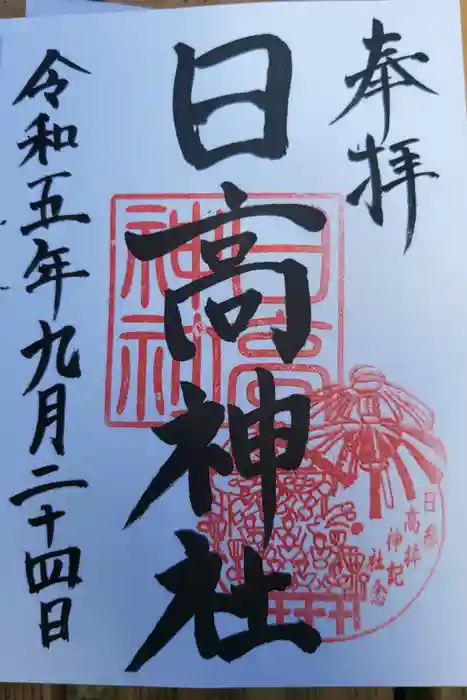 奉拝
日高神社
令和五年九月二十四日
日高神社
日高神社
参拝記念